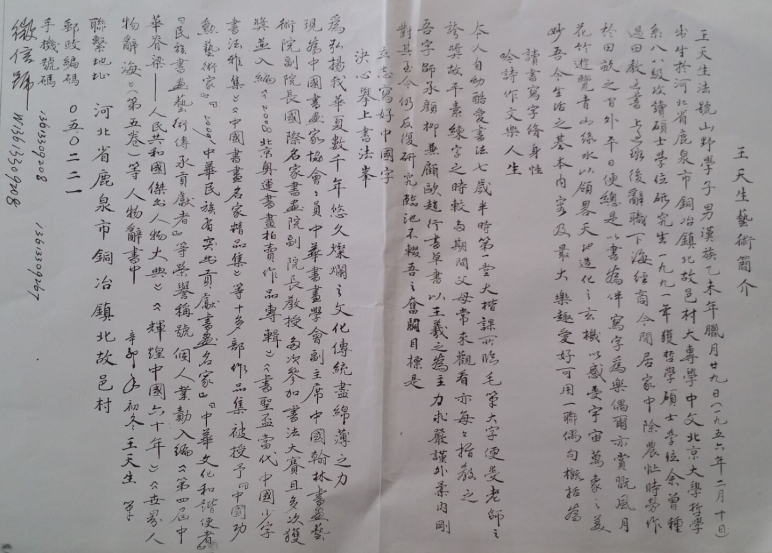 王天生藝術簡介
王天生法號山野學子男漢族乙未年臘月廿九日（一九五六年二月十日）
出生於河北省鹿泉市銅冶鎮北故邑村大專學中文北京大學哲學
系八八級攻讀碩士學位研究生一九九一年獲哲學碩士學位余曾種
過田教過書上過班後辭職下海經商今閒居家中除農忙時勞作
於田畝之曽外平日便總是以書為伴寫字為樂偶爾亦賞甌風月
花竹遊覽青山綠水以領畧天地造化之玄機以感受宇宙萬象之美
妙吾今生活之基本内容及最大樂趣愛好可用一聯偶句概括為
讀書寫字脩身性
吟詩作文樂人生
本人自幼酷愛書法七歲半時第一堂大楷課所臨毛筆大字便受老師之
誇獎故平素練字之時較多期間父母常來觀看亦每每指教之
吾字師承顔柳兼顧歐趙行書草書以王羲之為主力求嚴謹外柔内剛
對其至今仍反復研究臨池不輟吾之奮鬭目標是
立志寫好中國字
決心攀上書法峯
為弘揚我華夏數千年悠久燦爛之文化傳統盡綿薄之力
現為中國書畫家協會會員中華書畫學會副主席中國翰林書畫藝
術院副院長國際名家書畫院副院長教授多次參加書法大賽且多次獲
獎並入編《2008北京奥運書畫拍賣作品專輯》《書聖盃當代中國少字
書法雅集》《中國書畫名家精品集》等十多部作品集被授予『中國功
勲藝術家』『2009中華民族有突出貢獻書畫名家』『中華文化和諧使者』
『民族書画藝術傳承貢獻者』等榮譽稱號個人業勣入編《第四届中
華脊梁——人民共和國傑出人物大典》《輝煌中國六十年》《世界人
物辭海》（第五卷）等人物辭書中
辛卯年初冬王天生草
聯繫地址 河北省鹿泉市銅冶鎮北故邑村
郵政編碼 〇五〇二二一
手機號碼
微信號